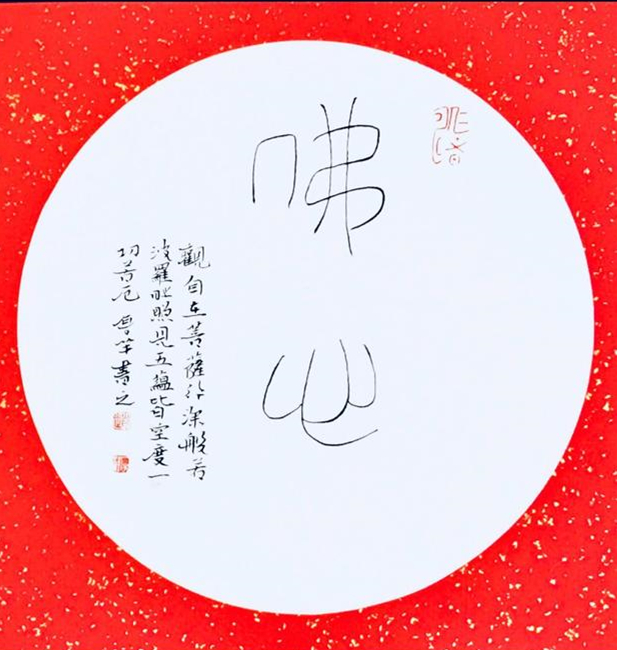 佛心
觀自在菩薩行深般若
波羅时照見五蘊皆空度一
切苦厄 書之